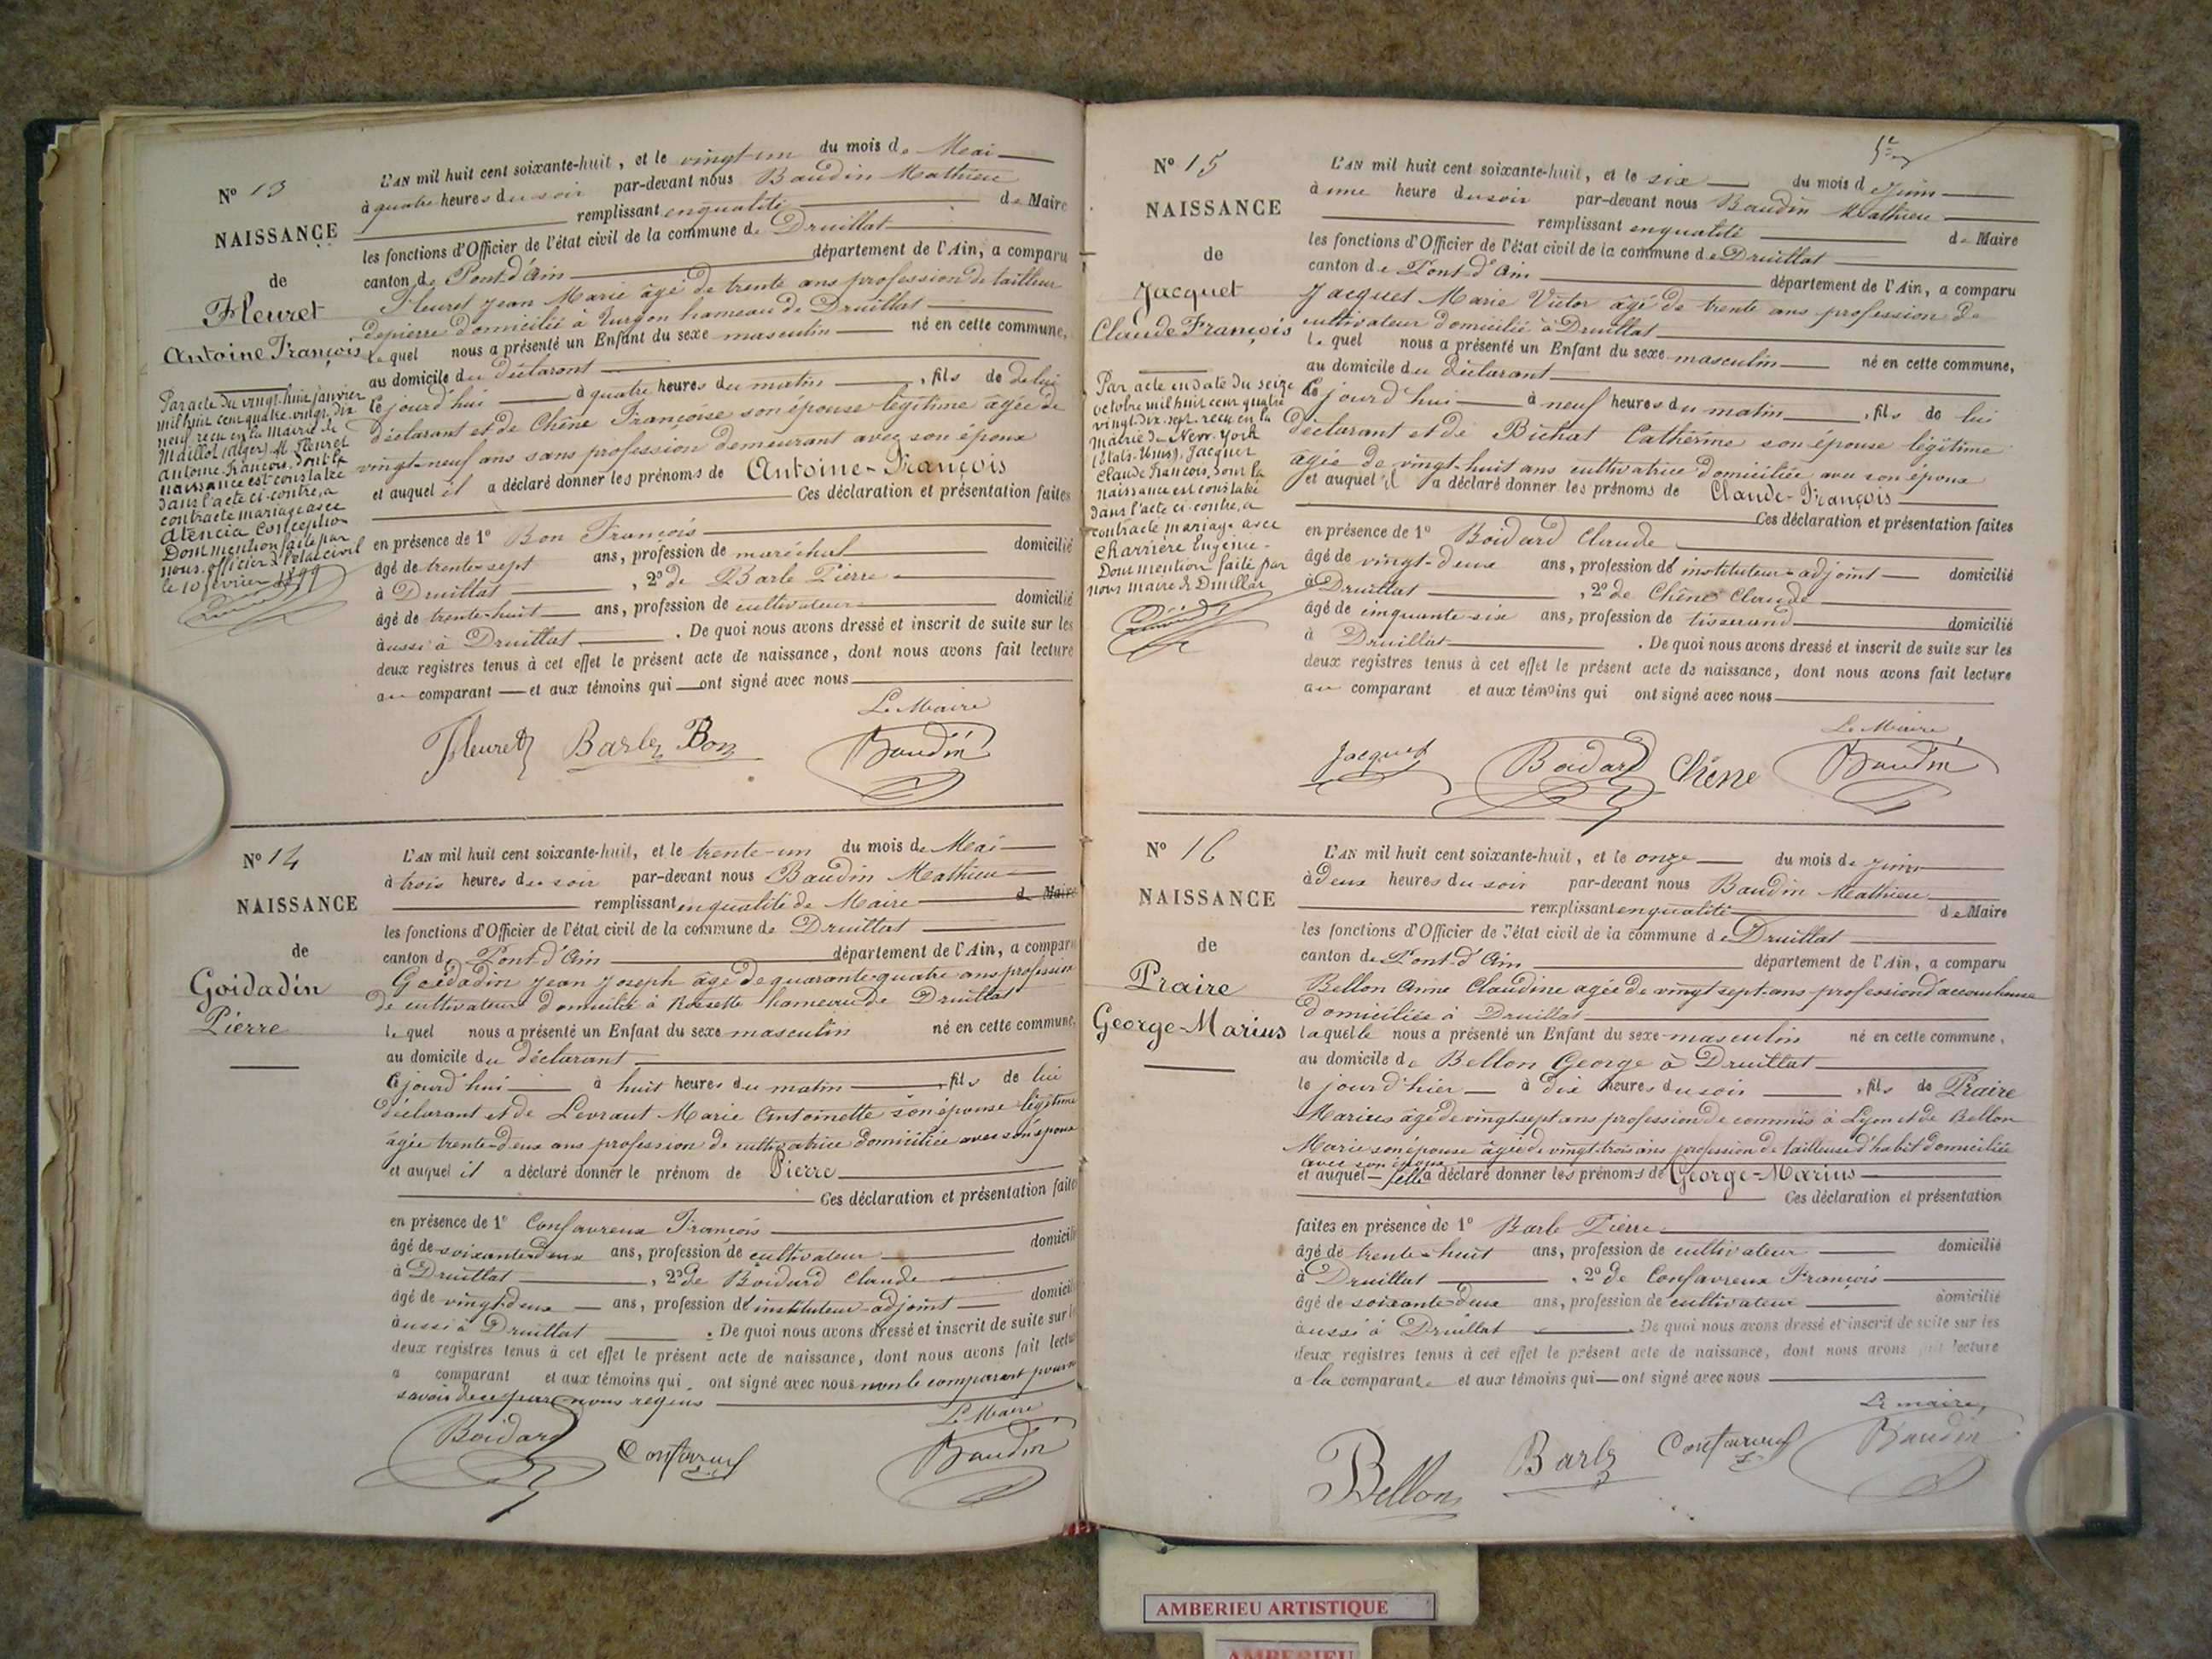 N° 13
NAISSANCE
de
Fleuret
Antoine François
Par acte du vingt-huit janvier
mil huit cent quatre-vingt-dix
neuf reçu en la mairie de
Maillot (Alger) M. Fleuret
Antoine François, dont la
naissance est constatée
dans l'acte ci-contre, a
contracté mariage avec
Atencia Conception
Dont mention faite par
nous officier de l'état civil
le 10 février 1899
L'AN mil huit cent soixante-huit, et le vingt-un du mois de Mai
à quatre heures du soir par-devant nous Baudin Mathieu
remplissant en qualité de Maire
les fonctions d'Officier de l'état civil de la commune de Druillat
canton de Pont-d'Ain département de l'Ain, a comparu
Fleuret Jean Marie âgé de trente ans profession de tailleur
de pierre domicilié à Turgon hameau de Druillat
le quel nous a présenté un Enfant du sexe masculin né en cette commune,
au domicile du déclarant
ce jourd'hui à quatre heures du matin, fils de de lui
déclarant et de Chêne Françoise son épouse légitime âgée de
vingt-neuf ans sans profession demeurant avec son époux
et auquel il a déclaré donner les prénoms de Antoine-François
Ces déclaration et présentation faites
en présence de 1° Bon François
âgé de trente-sept ans, profession de maréchal domicilié
à Druillat, 2° de Barle Pierre
âgé de trente-huit ans, profession de cultivateur domicilié
aussi à Druillat. De quoi nous avons dressé et inscrit de suite sur les
deux registres tenus à cet effet le présent acte de naissance, dont nous avons fait lecture
au comparant et aux témoins qui ont signé avec nous
Le Maire
Fleuret Barle Bon Baudin
N° 14
NAISSANCE
de
Goidadin
Pierre
L'AN mil huit cent soixante-huit, et le trente-un du mois de Mai
à trois heures du soir par-devant nous Baudin Mathieu
remplissant en qualité de Maire de Maire
les fonctions d'Officier de l'état civil de la commune de Druillat
canton d Pont-d'Ain département de l'Ain, a comparu
Goidadin Jean Joseph âgé de quarante-quatre ans profession
de cultivateur domicilié à Rossette hameau de Druillat
le quel nous a présenté un Enfant du sexe masculin né en cette commune,
au domicile du déclarant
ce jourd'hui à huit heures du matin, fils de lui
déclarant et de Levraut Marie Antoinette son épouse légitime
âgée trente-deux ans profession de cultivatrice domiciliée avec son époux
et auquel il a déclaré donner le prénom de Pierre
Ces déclaration et présentation faites
en présence de 1° Confavreux François
âgé de soixante deux ans, profession de cultivateur domicilié
à Druillat, 2° de Boidard Claude
âgé de vingt-deux ans, profession de instituteur-adjoint domicilié
aussi à Druillat. De quoi nous avons dressé et inscrit de suite sur l
deux registres tenus à cet effet le présent acte de naissance, dont nous avons fait lectu
a comparant et aux témoins qui ont signé avec nous non le comparant pour n
savoir de ce par nous requis
Le Maire
Boidard Confavreux Baudin
5e
N° 15
NAISSANCE
de
Jacquet
Claude François
Par acte en date du seize
octobre mil huit cent quatre
vingt-dix-sept reçu en la
mairie de New-York
(Etats-Unis), Jacquet
Claude François, dont la
naissance est constatée
dans l'acte ci-contre, a
contracté mariage avec
Charrière Eugénie.
Dont mention faite par
nous maire de Druillat
L'AN mil huit cent soixante-huit, et le six du mois d Juin
à une heure du soir par-devant nous Baudin Mathieu
remplissant en qualité de Maire
les fonctions d'Officier de l'état civil de la commune de Druillat
canton de Pont-d'Ain département de l'Ain, a comparu
Jacquet Marie Victor âgé de trente ans profession de
cultivateur domicilié à Druillat
le quel nous a présenté un Enfant du sexe masculin né en cette commune,
au domicile du déclarant
ce jourd'hui à neuf heures du matin, fils de lui
déclarant et de Bichat Cathérine son épouse légitime
âgée de vingt-huit ans cultivatrice domiciliée avec son époux
et auquel il a déclaré donner les prénoms de Claude-François
Ces déclaration et présentation faites
en présence de 1° Boidard Claude
âgé de vingt-deux ans, profession de instituteur-adjoint domicilié
à Druillat, 2° de Chêne Claude
âgé de cinquante-six ans, profession de tisserand domicilié
à Druillat. De quoi nous avons dressé et inscrit de suite sur les
deux registres tenus à cet effet le présent acte de naissance, dont nous avons fait lecture
au comparant et aux témoins qui ont signé avec nous
Le Maire,
Jacquet Boidard Chêne Baudin
N° 16
NAISSANCE
de
Praire
George-Marius
L'AN mil huit cent soixante-huit, et le onze du mois de Juin
à deux heures du soir par-devant nous Baudin Mathieu
remplissant en qualité de Maire
les fonctions d'Officier de l'état civil de la commune de Druillat
canton de Pont-d'Ain département de l'Ain, a comparu
Bellon Anne Claudine agée de vingt sept-ans profession d'accoucheuse
domiciliée à Druillat
laquelle nous a présenté un Enfant du sexe masculin né en cette commune,
au domicile de Bellon George à Druillat
le jour d'hier à dix heures du soir, fils de Praire
Marius âgé de vingt sept ans profession de commis à Lyon et de Bellon
Marie son épouse âgée de vingt-trois ans profession de tailleuse d'habit domiciliée
avec son époux
et auquel elle a déclaré donner les prénoms de George-Marius
Ces déclaration et présentation
faites en présence de 1° Barle Pierre
âgé de trente-huit ans, profession de cultivateur domicilié
à Druillat, 2° de Confavreux François
âgé de soixante-deux ans, profession de cultivateur domicilié
aussi à Druillat. De quoi nous avons dressé et inscrit de suite sur les
deux registres tenus à cet effet le présent acte de naissance, dont nous avons fait lecture
a la comparante et aux témoins qui ont signé avec nous
Le maire,
Bellon Barle Confavreux Baudin
AMBERIEU ARTISTIQUE
AMBERIEU